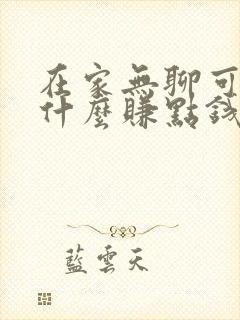 在家無聊可
什麼賺點錢
藍雲天